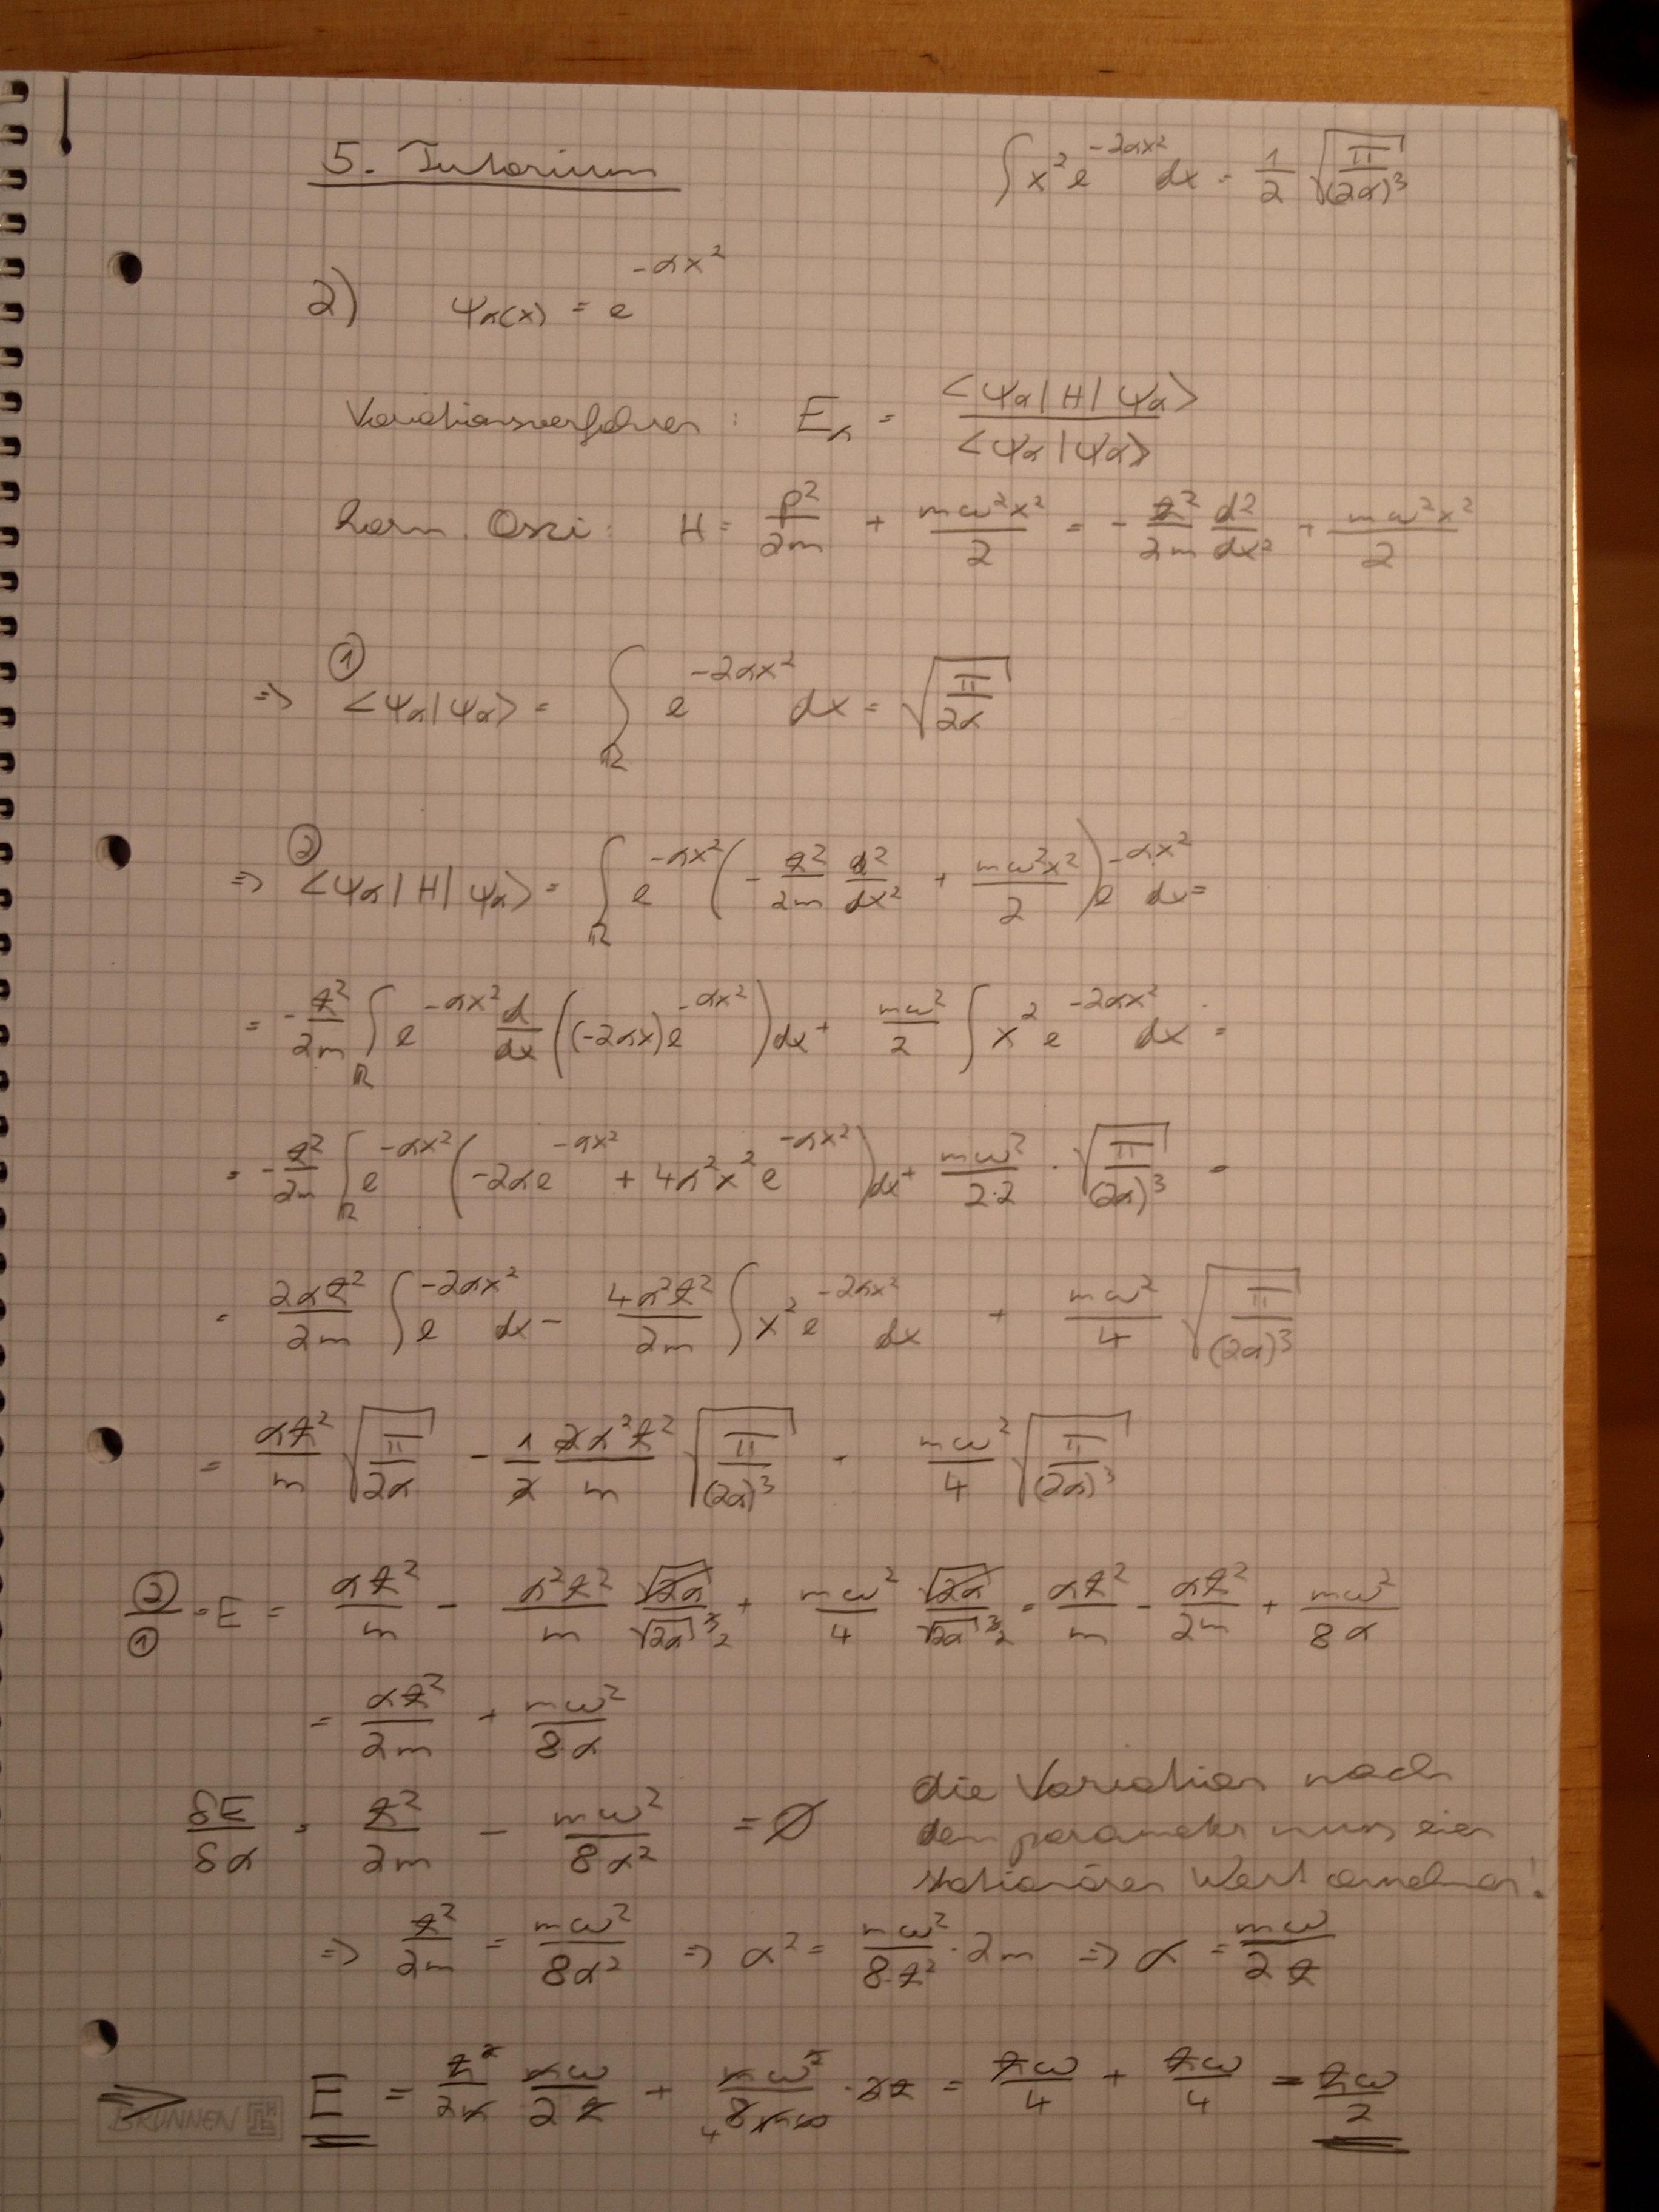 5. Tutorium
∫ x² e^(-2αx²) dx = 1/2 √(π/(2α)³)
2) ψα(x) = e^(-αx²)
Variationsverfahren : Eα = <ψα|H|ψα> / <ψα|ψα>
harm. Oszi: H = p²/2m + mω²x²/2 = - ħ²/2m d²/dx² + mω²x²/2
① ⇒ <ψα|ψα> = ∫_ℝ e^(-2αx²) dx = √(π/2α)
② ⇒ <ψα|H|ψα> = ∫_ℝ e^(-αx²) (- ħ²/2m d²/dx² + mω²x²/2) e^(-αx²) dx =
= - ħ²/2m ∫_ℝ e^(-αx²) d/dx ((-2αx) e^(-αx²)) dx + mω²/2 ∫ x² e^(-2αx²) dx =
= - ħ²/2m ∫_ℝ e^(-αx²) (-2α e^(-αx²) + 4α²x² e^(-αx²)) dx + mω²/2·2 · √(π/(2α)³) =
= 2αħ²/2m ∫ e^(-2αx²) dx - 4α²ħ²/2m ∫ x² e^(-2αx²) dx + mω²/4 √(π/(2α)³)
= αħ²/m √(π/2α) - 1/2 2α²ħ²/m √(π/(2α)³) + mω²/4 √(π/(2α)³)
②/① = E = αħ²/m - α²ħ²/m √2α/√2α³ + mω²/4 √2α/√2α³ = αħ²/m - αħ²/2m + mω²/8α
= αħ²/2m + mω²/8α
δE/δα = ħ²/2m - mω²/8α² = 0
die Variation nach
dem parameter muss einen
stationären Wert annehmen!
⇒ ħ²/2m = mω²/8α² ⇒ α² = mω²/8·ħ² · 2m ⇒ α = mω/2ħ
⇒ E = ħ²/2m mω/2ħ + mω²/8mω · 2ħ = ħω/4 + ħω/4 = ħω/2
BRUNNEN